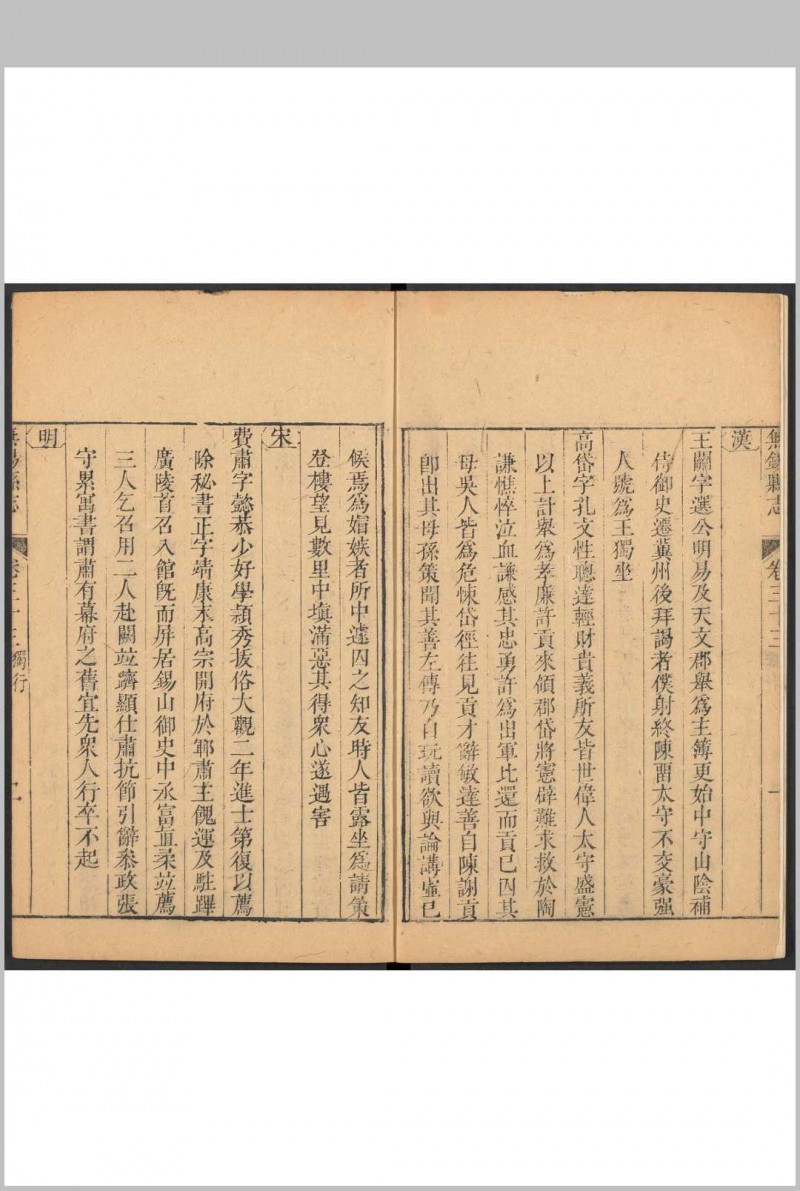 無錫縣志 卷三十三 一
漢
王關字選公明易及天文郡舉為主簿更始中守山陰補
侍御史遷冀州後拜謁者僕射終陳留太守不交豪强
人號為王獨坐
高岱字孔文性聰達輕財貴義所友皆世偉人太守盛憲
以上計舉為孝廉許貢來領郡岱將憲辟難求救於陶
謙憔悴泣血謙感其忠勇許為出軍比還而貢已囚其
母吳人皆為危悚岱徑往見貢才辭敏達善自陳謝貢
卽出其母孫策聞其善左傳乃自玩讀欲與論講岱已
候焉為媢嫉者所中遽囚之知友時人皆露坐為請策
登樓望見數里中塡滿惡其得衆心遂遇害
宋
費肅字懿恭少好學頴秀拔俗大觀二年進士第復以薦
除秘書正字靖康末高宗開府於鄆肅主餽運及駐蹕
廣陵首召入館旣而屏居錫山御史中丞富直柔竝薦
三人乞召用二人赴闕竝躋顯仕肅抗節引辭叅政張
守累寓書謂肅有幕府之舊宜先衆人行卒不起
明
無錫縣志 卷三十三 獨行